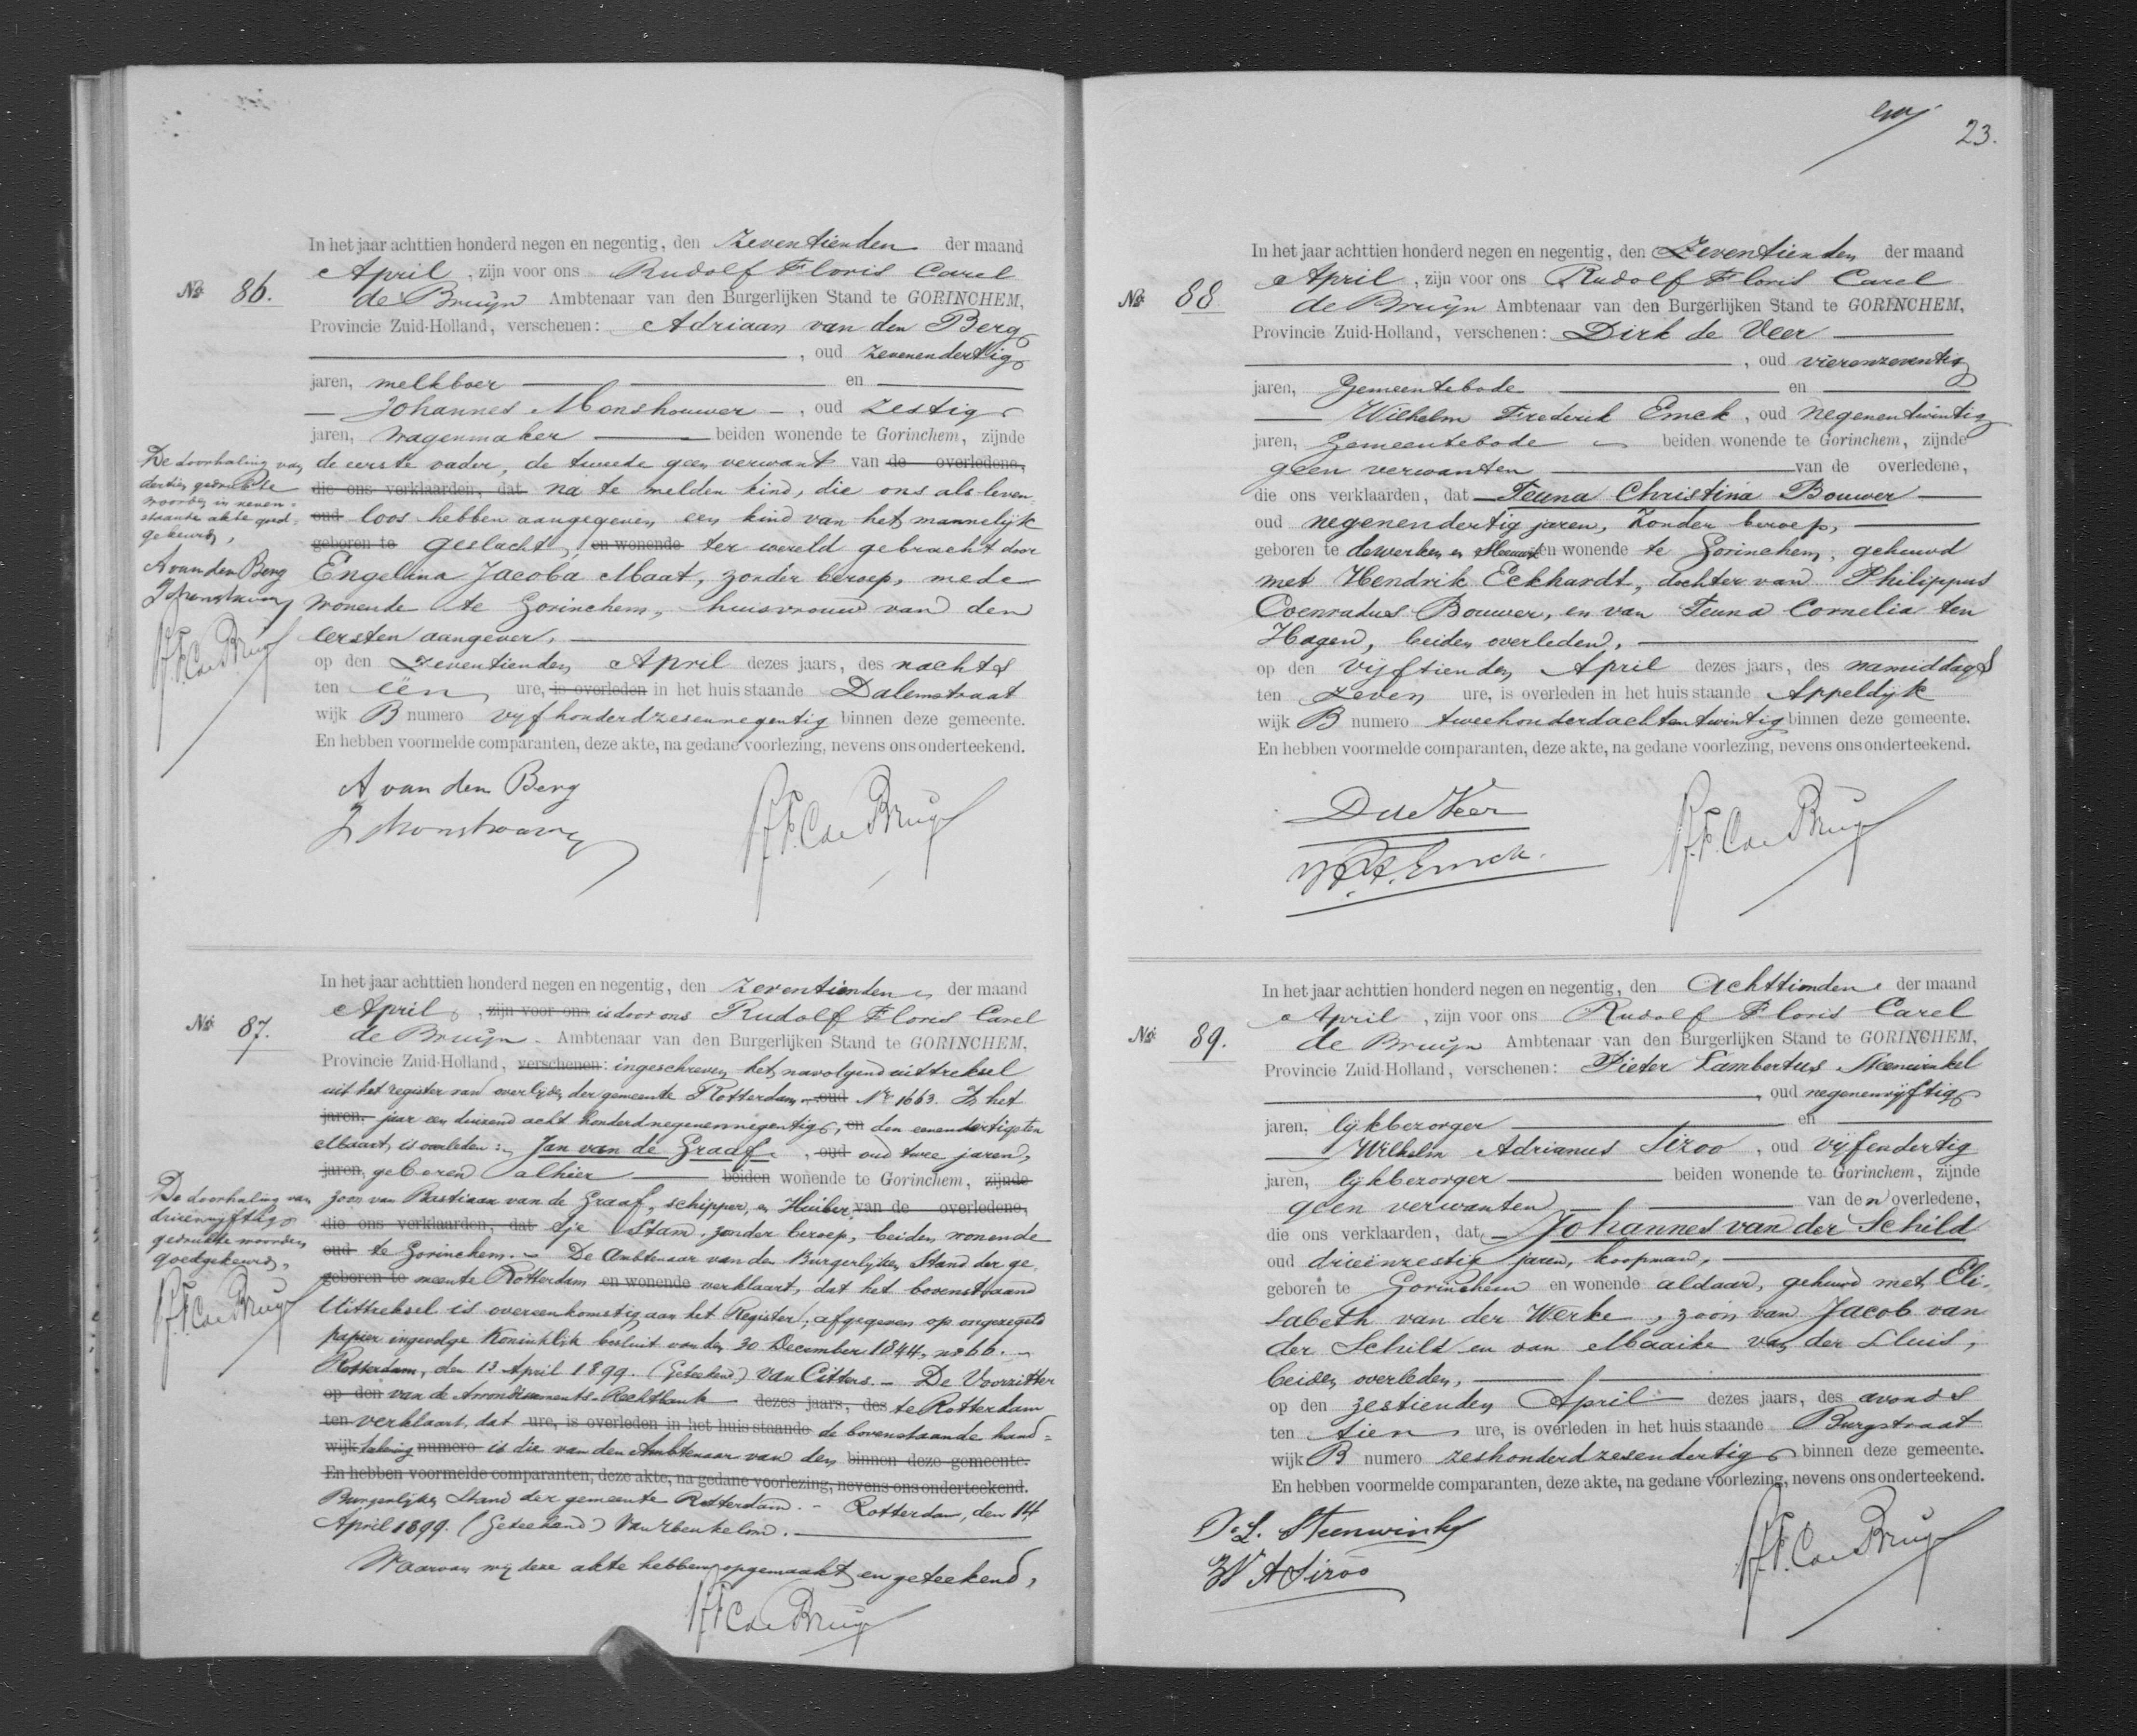 In het jaar achttien honderd negen en negentig, den Zeventienden der maand
No. 86.
April, zijn voor ons Rudolf Floris Carel
de Bruijn Ambtenaar van den Burgerlijken Stand te GORINCHEM,
Provincie Zuid-Holland, verschenen: Adriaan van den Berg
, oud zevenendertig
jaren, melkboer en
Johannes Monshouwer, oud zestig
jaren, wagenmaker beiden wonende te Gorinchem, zijnde
de eerste vader, de tweede geen verwant van de overledene,
die ons verklaarden, dat na te melden kind, die ons als leven
oud loos hebben aangegeven een kind van het mannelijk
geboren te geslacht, en wonende ter wereld gebracht door
Engelina Jacoba Maat, zonder beroep, mede
wonende te Gorinchem, huisvrouw van den
eersten aangever,
op den Zeventienden April dezes jaars, des nachts
ten één ure, is overleden in het huis staande Dalemstraat
wijk B numero vijfhonderdzesennegentig binnen deze gemeente.
En hebben voormelde comparanten, deze akte, na gedane voorlezing, nevens ons onderteekend.
De doorhaling van
dertien gedrukte
woorden in neven-
staande akte goed-
gekeurd,
A van den Berg
R.F.C. de Bruijn
A van den Berg
R.F.C. de Bruijn
In het jaar achttien honderd negen en negentig, den Zeventienden der maand
No. 87.
April, zijn voor ons is door ons Rudolf Floris Carel
de Bruijn Ambtenaar van den Burgerlijken Stand te GORINCHEM,
Provincie Zuid-Holland, verschenen: ingeschreven het navolgend uittreksel
uit het register van overlijden der gemeente Rotterdam oud No 1663. In het
jaren. jaar een duizend acht honderd negenennegentig, en den eenendertigsten
Maart, is overleden: Jan van de Graaf, oud oud twee jaren,
jaren, geboren alhier beiden wonende te Gorinchem, zijnde
zoon van Bastiaan van de Graaf, schipper, en Huiber van de overledene,
die ons verklaarden, dat tje Stam, zonder beroep, beiden wonende
oud te Gorinchem. De Ambtenaar van den Burgerlijken Stand der ge-
geboren te meente Rotterdam en wonende verklaart, dat het bovenstaand
Uittreksel is overeenkomstig aan het Register, afgegeven op ongezegeld
papier ingevolge Koninklijk besluit van den 30 December 1844, no 66.
Rotterdam, den 13 April 1899. (Geteekend) Van Citters. De Voorzitter
op den van de Arrondissements-Rechtbank dezes jaars, des te Rotterdam
ten verklaart, dat ure, is overleden in het huis staande de bovenstaande hand-
wijk tekening numero is die van den Ambtenaar van den binnen deze gemeente.
En hebben voormelde comparanten, deze akte, na gedane voorlezing, nevens ons onderteekend.
Burgerlijken Stand der gemeente Rotterdam. Rotterdam, den 14
April 1899. (Geteekend)
Waarvan wij deze akte hebben opgemaakt en geteekend,
R.F.C. de Bruijn
De doorhaling van
drieenvijftig
gedrukte woorden
goedgekeurd,
R.F.C. de Bruijn
23.
In het jaar achttien honderd negen en negentig, den Zeventienden der maand
No. 88
April, zijn voor ons Rudolf Floris Carel
de Bruijn Ambtenaar van den Burgerlijken Stand te GORINCHEM,
Provincie Zuid-Holland, verschenen: Dirk de Veer
, oud vierenzeventig
jaren, Gemeentebode en
Wilhelm Frederik Emck, oud negenentwintig
jaren, Gemeentebode beiden wonende te Gorinchem, zijnde
geen verwanten van de overledene,
die ons verklaarden, dat Teuna Christina Bouwer
oud negenendertig jaren, zonder beroep,
geboren te de Werken en Sleeuwijk en wonende te Gorinchem, gehuwd
met Hendrik Eckhardt, dochter van Philippus
Coenradus Bouwer, en van Teuna Cornelia ten
Hagen, beiden overleden,
op den vijftienden April dezes jaars, des namiddags
ten zeven ure, is overleden in het huis staande Appeldijk
wijk B numero tweehonderdachtentwintig binnen deze gemeente.
En hebben voormelde comparanten, deze akte, na gedane voorlezing, nevens ons onderteekend.
D de Veer
W.F. Emck.
R.F.C. de Bruijn
In het jaar achttien honderd negen en negentig, den Achttienden der maand
No. 89.
April, zijn voor ons Rudolf Floris Carel
de Bruijn Ambtenaar van den Burgerlijken Stand te GORINCHEM,
Provincie Zuid-Holland, verschenen: Pieter Lambertus Steenwinkel
, oud negenenvijftig
jaren, lijkbezorger en
Wilhelm Adrianus Sizoo, oud vijfendertig
jaren, lijkbezorger beiden wonende te Gorinchem, zijnde
geen verwanten van den overledene,
die ons verklaarden, dat Johannes van der Schild
oud drieënzestig jaren, koopman,
geboren te Gorinchem en wonende aldaar, gehuwd met Eli-
sabeth van der Werke, zoon van Jacob van
der Schild en van Maaike van der Sluis,
beiden overleden,
op den zestienden April dezes jaars, des avonds
ten tien ure, is overleden in het huis staande Burgstraat
wijk B numero zeshonderdzesendertig binnen deze gemeente.
En hebben voormelde comparanten, deze akte, na gedane voorlezing, nevens ons onderteekend.
P.L. Steenwinkel
W A Sizoo
R.F.C. de Bruijn